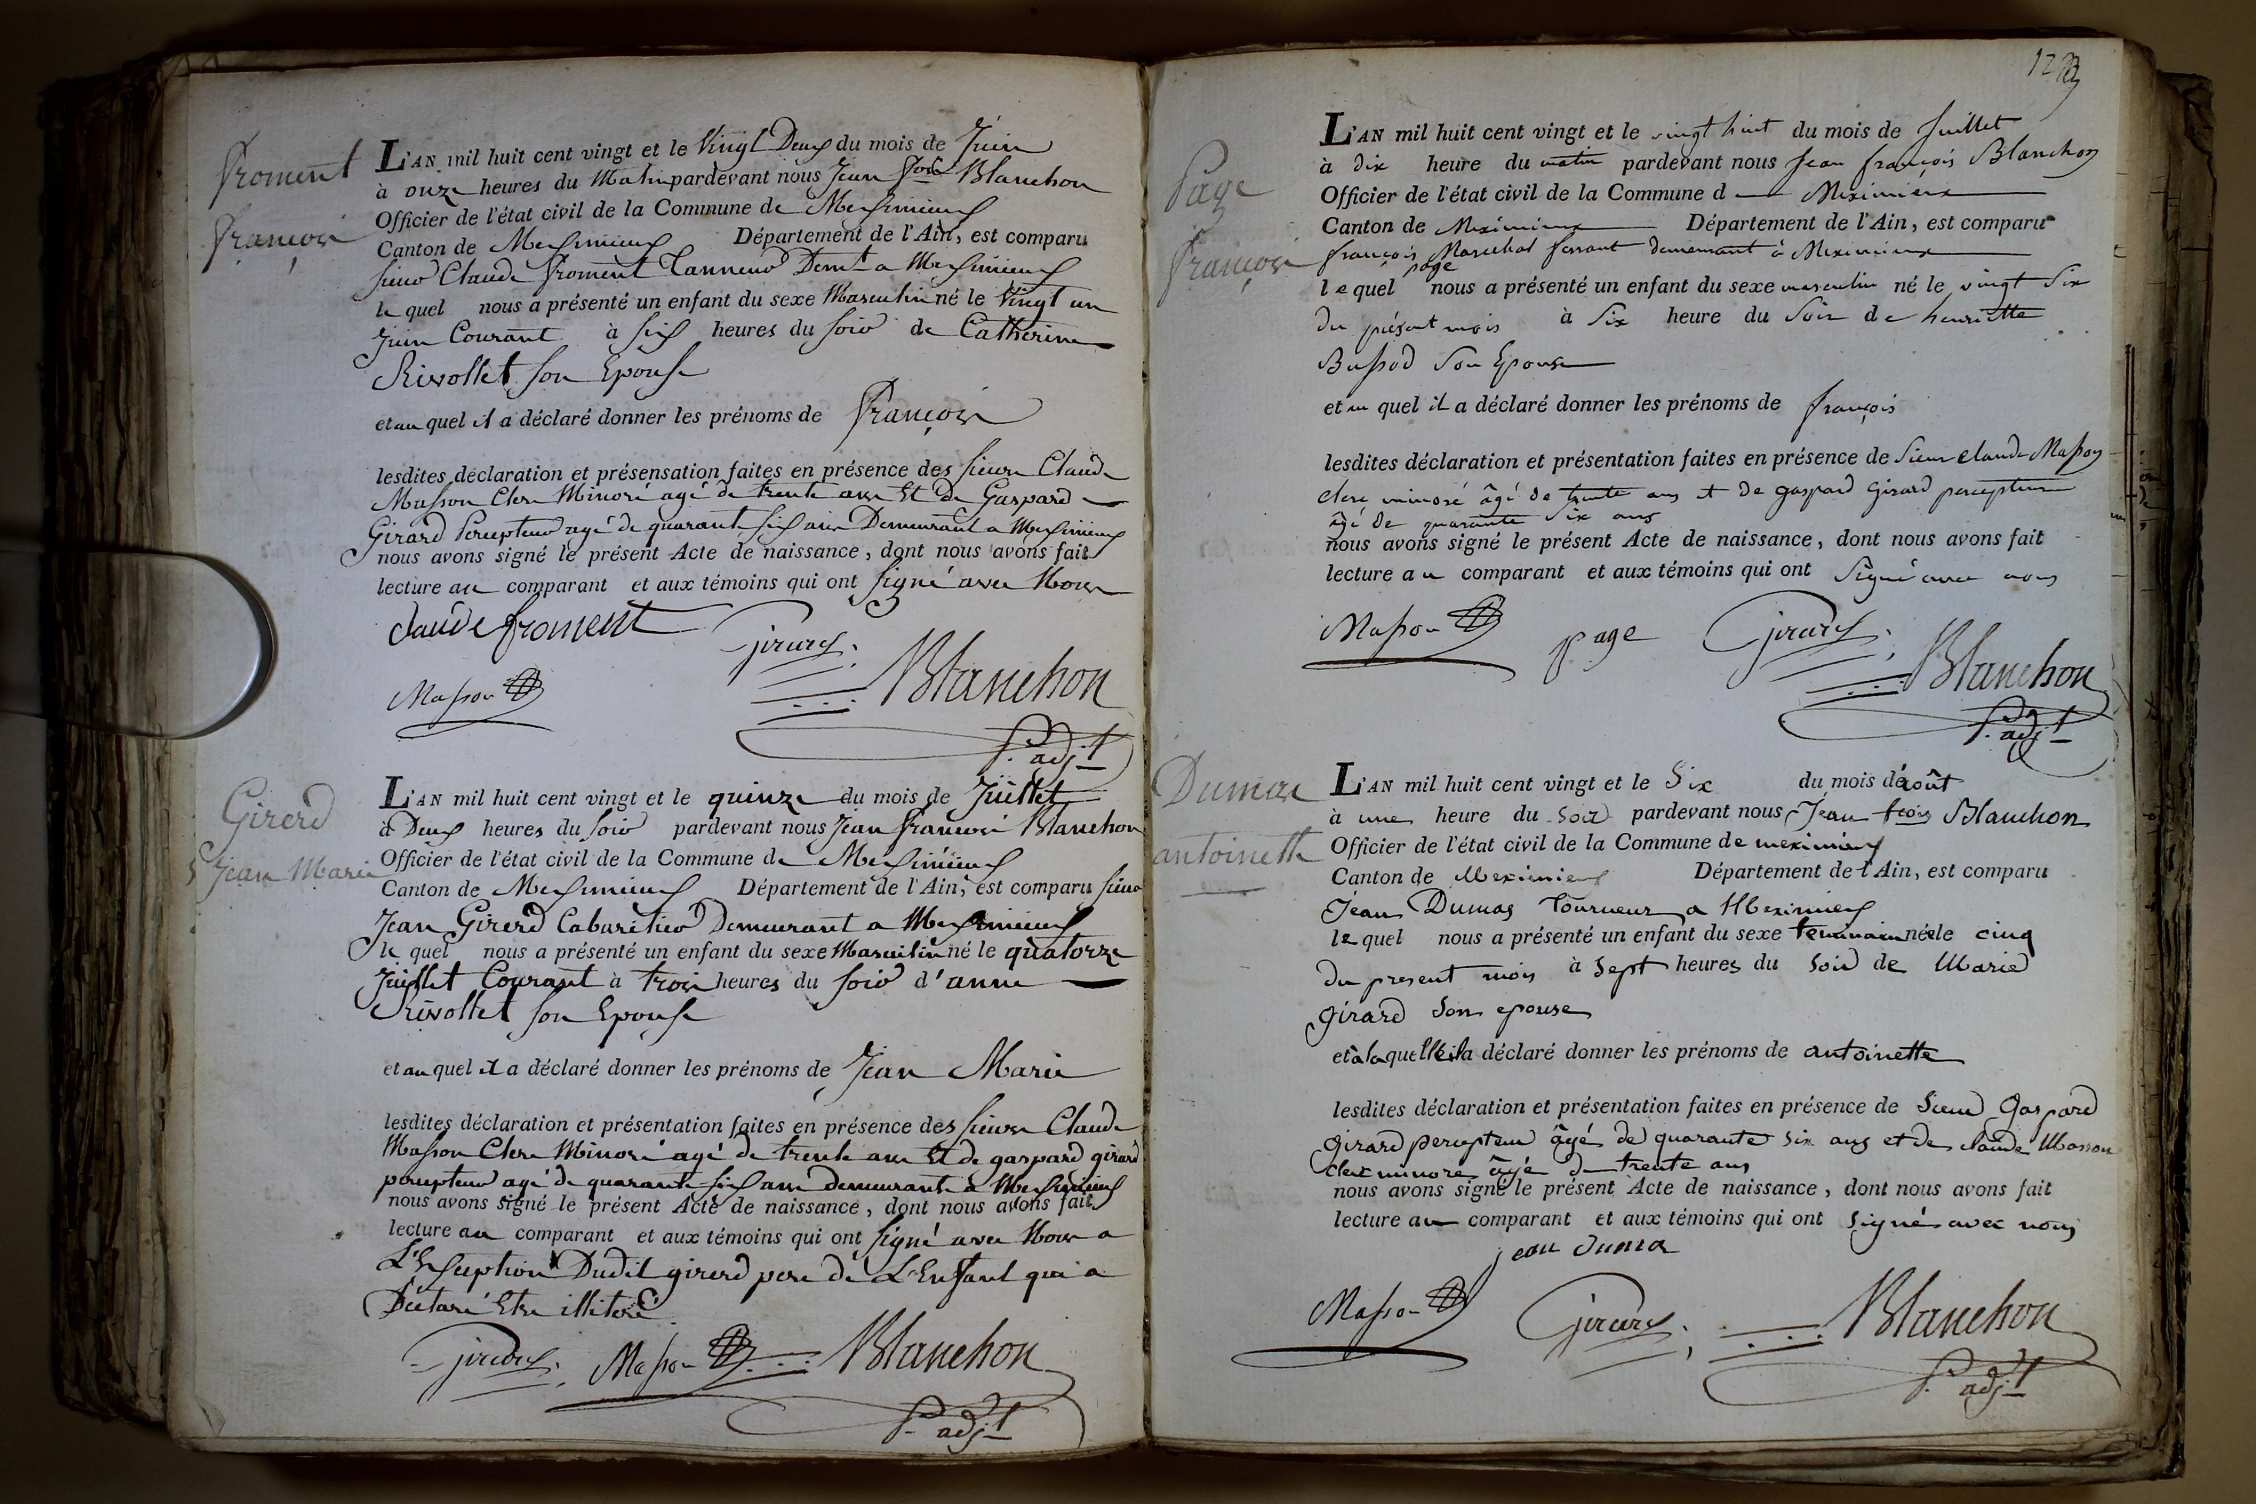 froment
françois
L'AN mil huit cent vingt et le Vingt Deux du mois de Juin
à onze heures du Matin pardevant nous Jean fois Blanchon
Officier de l'état civil de la Commune de Meximieux
Canton de Meximieux Département de l'Ain, est comparu
sieur Claude froment Tanneur Demt a Meximieux
le quel nous a présenté un enfant du sexe Masculin né le Vingt un
Juin Courant à six heures du soir de Catherine
Rivollet son Epouse
et au quel il a déclaré donner les prénoms de françois
lesdites déclaration et présensation faites en présence des sieurs Claude
Masson Clerc Minoré agé de trente ans Et de Gaspard
Girard Percepteur agé de quarante six ans Demeurant a Meximieux
nous avons signé le présent Acte de naissance, dont nous avons fait
lecture au comparant et aux témoins qui ont signé avec Nous
claude froment Girard
Masson Blanchon
adjt
Girerd
Jean Marie
L'AN mil huit cent vingt et le quinze du mois de Juillet
à Deux heures du soir pardevant nous Jean françois Blanchon
Officier de l'état civil de la Commune de Meximieux
Canton de Meximieux Département de l'Ain, est comparu sieur
Jean Girerd Cabaretier Demeurant a Meximieux
le quel nous a présenté un enfant du sexe Masculin né le quatorze
Juillet Courant à trois heures du soir d'anne
Rivollet son Epouse
et au quel il a déclaré donner les prénoms de Jean Marie
lesdites déclaration et présentation faites en présence des sieurs Claude
Masson Clerc Minoré agé de trente ans Et de gaspard girard
percepteur agé de quarante six ans demeurants a Meximieux
nous avons signé le présent Acte de naissance, dont nous avons fait
lecture au comparant et aux témoins qui ont signé avec Nous a
L'Exception Dudit girerd pere de L'Enfant qui a
Déclaré Etre illiteré
Girard Masson Blanchon
adjt
Page
françois
L'AN mil huit cent vingt et le vingt huit du mois de Juillet
à dix heure du matin pardevant nous Jean françois Blanchon
Officier de l'état civil de la Commune d Meximieux
Canton de Meximieux Département de l'Ain, est comparu
françois page Marechal ferrant demeurant à Meximieux
le quel nous a présenté un enfant du sexe masculin né le vingt Six
du présent mois à Six heure du Soir de henriette
Bussod Son Epouse
et au quel il a déclaré donner les prénoms de françois
lesdites déclaration et présentation faites en présence de Sieur claude Masson
clerc minoré âgé de trente ans et de gaspard Girard percepteur
âgé de quarante Six ans
nous avons signé le présent Acte de naissance, dont nous avons fait
lecture au comparant et aux témoins qui ont Signé avec nous
Masson page Girard
Blanchon
adjt
Dumas
antoinette
L'AN mil huit cent vingt et le Six du mois d'août
à une heure du soir pardevant nous Jean fcois Blanchon
Officier de l'état civil de la Commune de meximieux
Canton de Meximieux Département de l'Ain, est comparu
Jean Dumas Tourneur a Meximieux
le quel nous a présenté un enfant du sexe feminin née le cinq
du present mois à Sept heures du soir de Marie
girard son epouse
et à laquelle il a déclaré donner les prénoms de antoinette
lesdites déclaration et présentation faites en présence de Sieur Gaspard
girard percepteur âgé de quarante six ans et de claude Masson
clerc minore âgé de trente ans
nous avons signé le présent Acte de naissance, dont nous avons fait
lecture au comparant et aux témoins qui ont signés avec nous
jean dumas
Masson Girard Blanchon
adjt